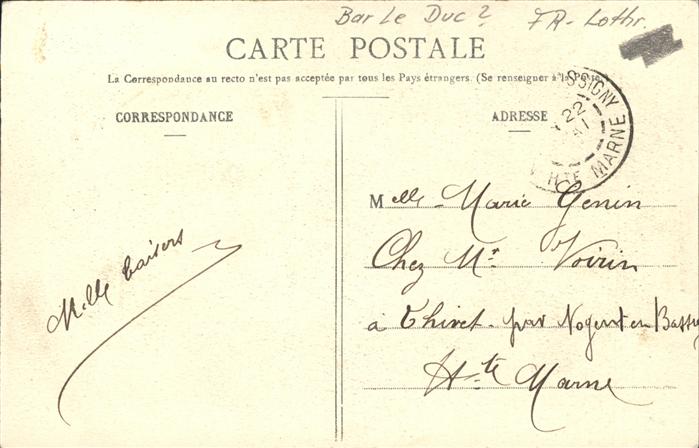 Bar Le Duc? FR-Lothr.
CARTE POSTALE
La Correspondance au recto n'est pas acceptée par tous les Pays étrangers. (Se renseigner à la Poste
CORRESPONDANCE
ADRESSE
SSIGNY
22
HTE MARNE
Melle Marie Genin
Chez Mr Voirin
à Thivet par Nogent en Bassig
Hte Marne
Mille baisers